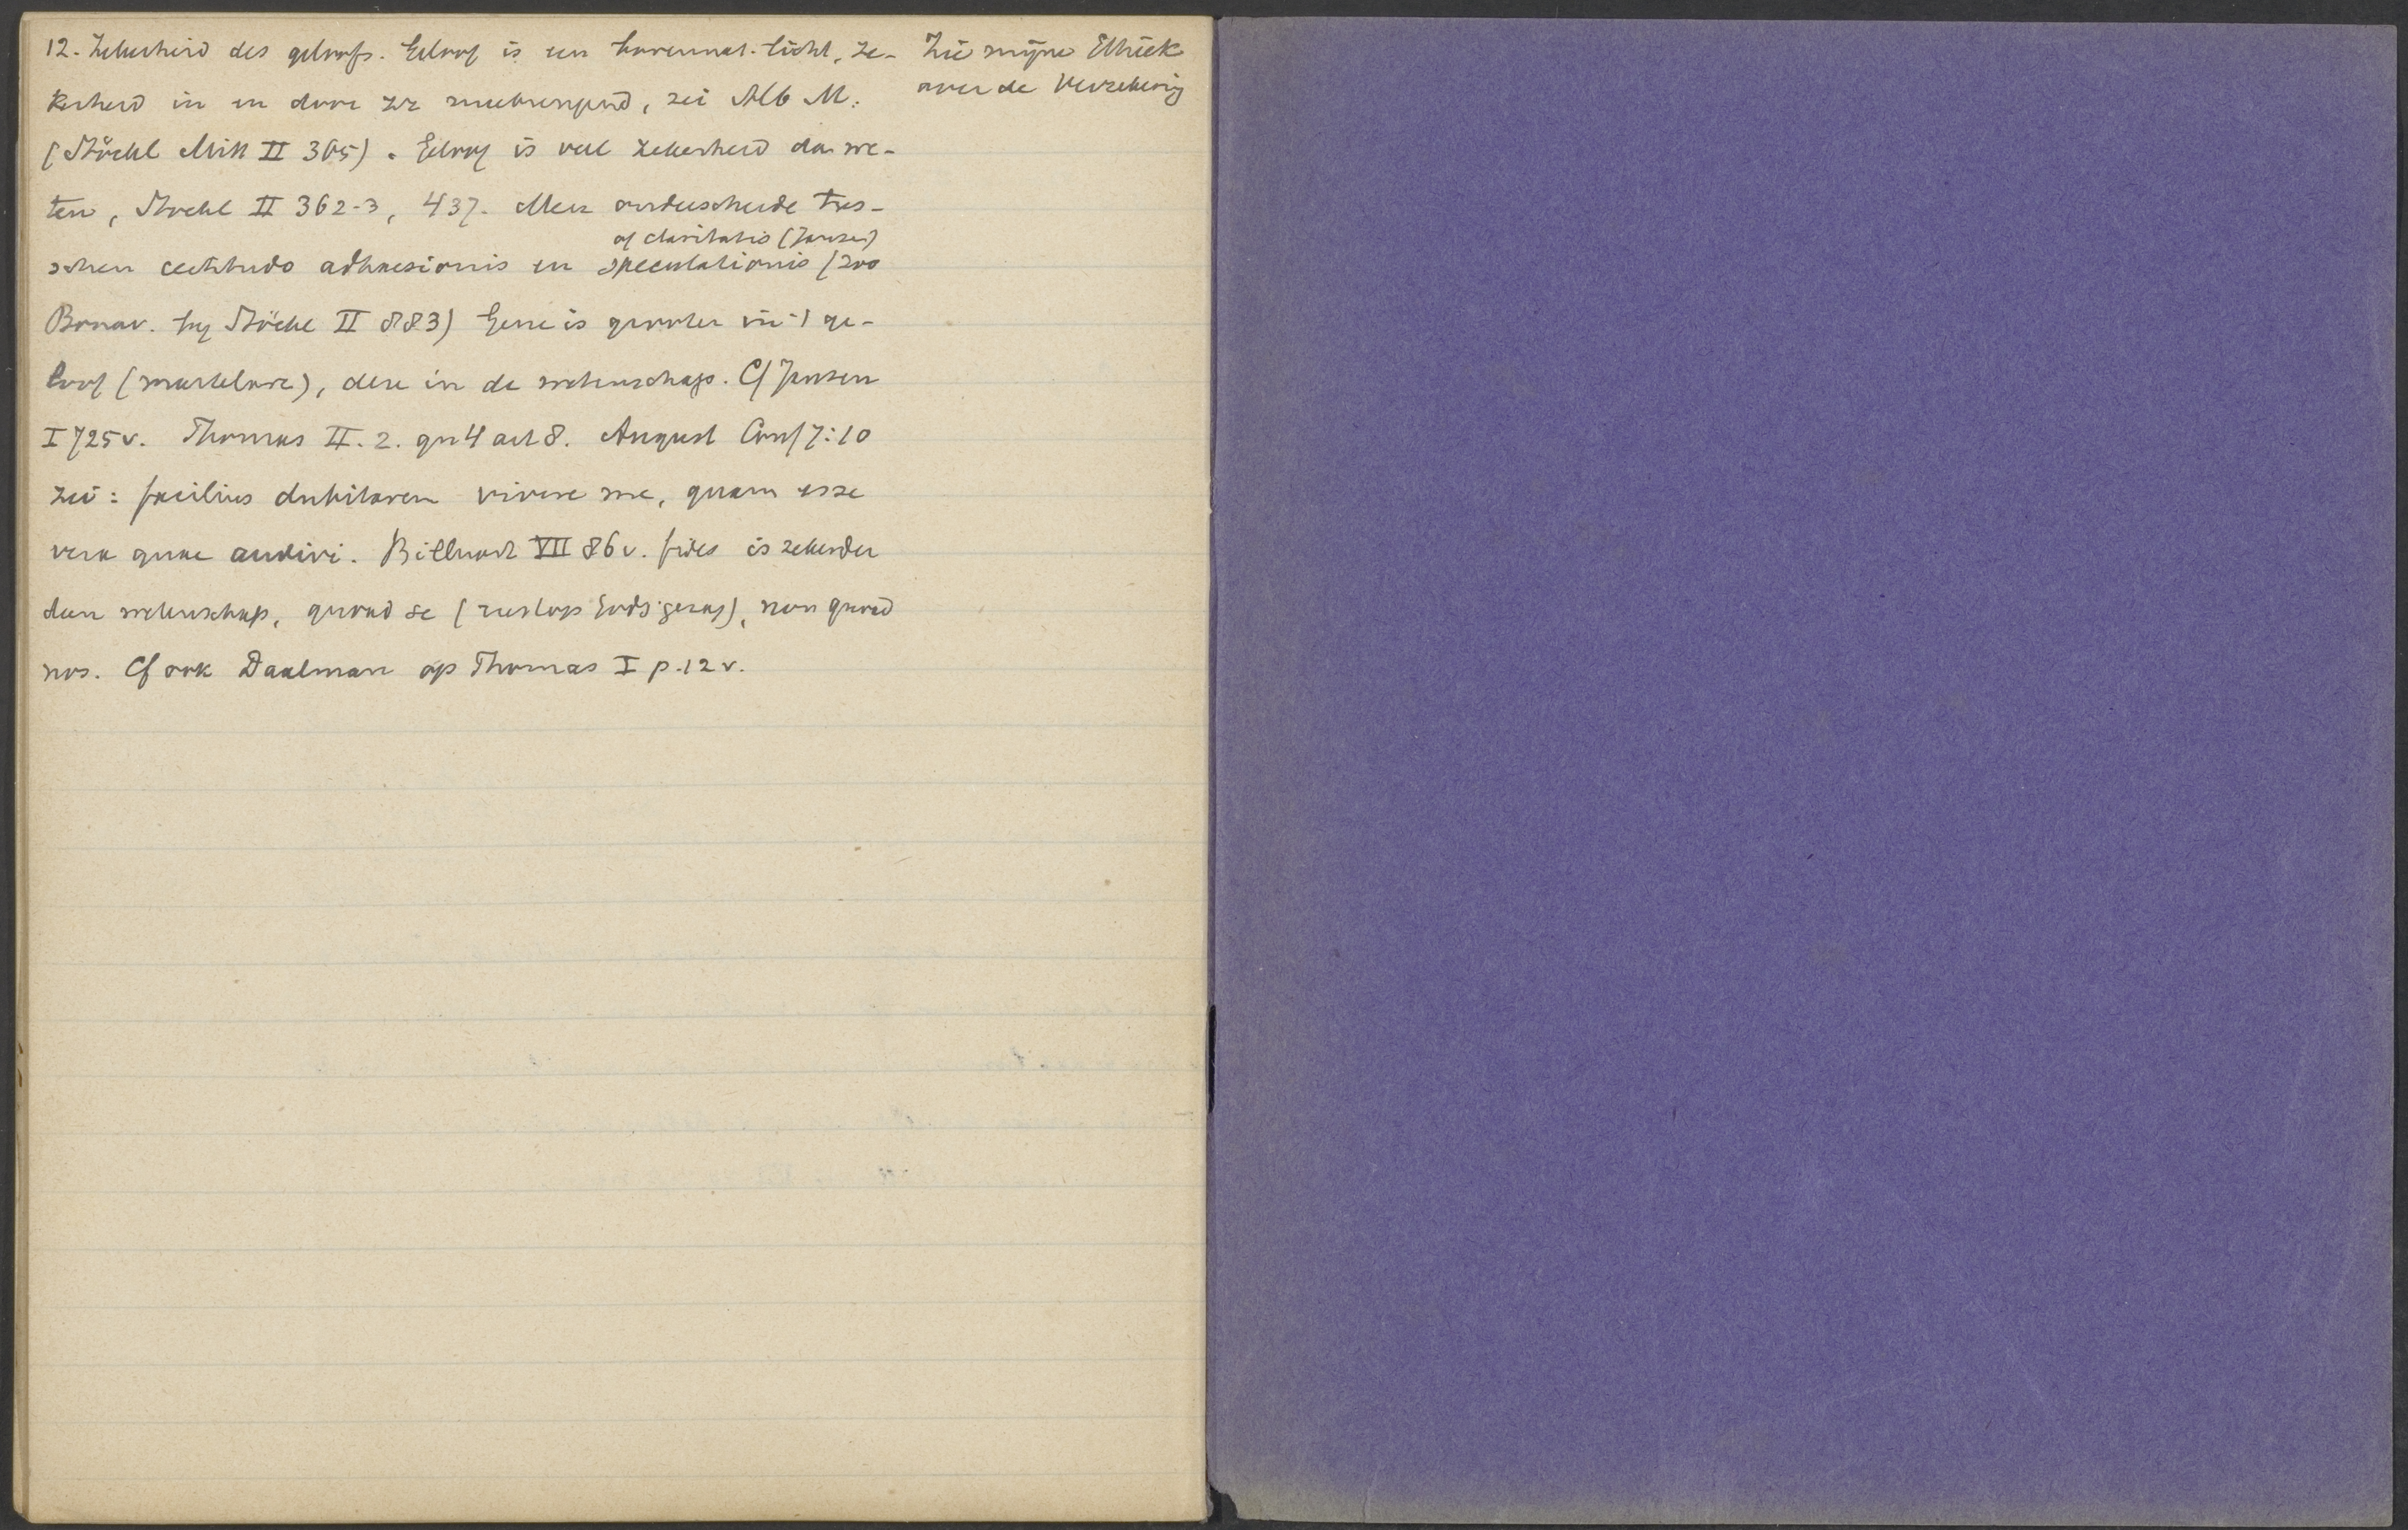 12. Zekerheid des geloofs. Geloof is een bovennat. licht, ze-
kerheid in en door zich meebrengend, zei Alb M.
(Stöckl Mitt II 365). Geloof is veel zekerheid dan we-
ten, Stöckl II 362-3, 437. Men onderscheide tus-
of claritatis (Jansen)
schen certitudo adhaesionis en speculationis (zoo
Bonav. by Stöckl II 883) Gene is grooter in 't ge-
loof (martelaren), deze in de wetenschap. Cf Jansen
I 725v. Thomas II. 2. qu 4 art 8. August Conf 7:10
zei: facilius dubitarem vivere me, quam esse
vera quae audivi. Billuart VII 86v. fides is zekerder
dan wetenschap, quoad se (rust op Gods gezag), non quoad
nos. Cf ook Daelman op Thomas I p. 12 v.
Zie mijne Ethiek
over de Verzekering